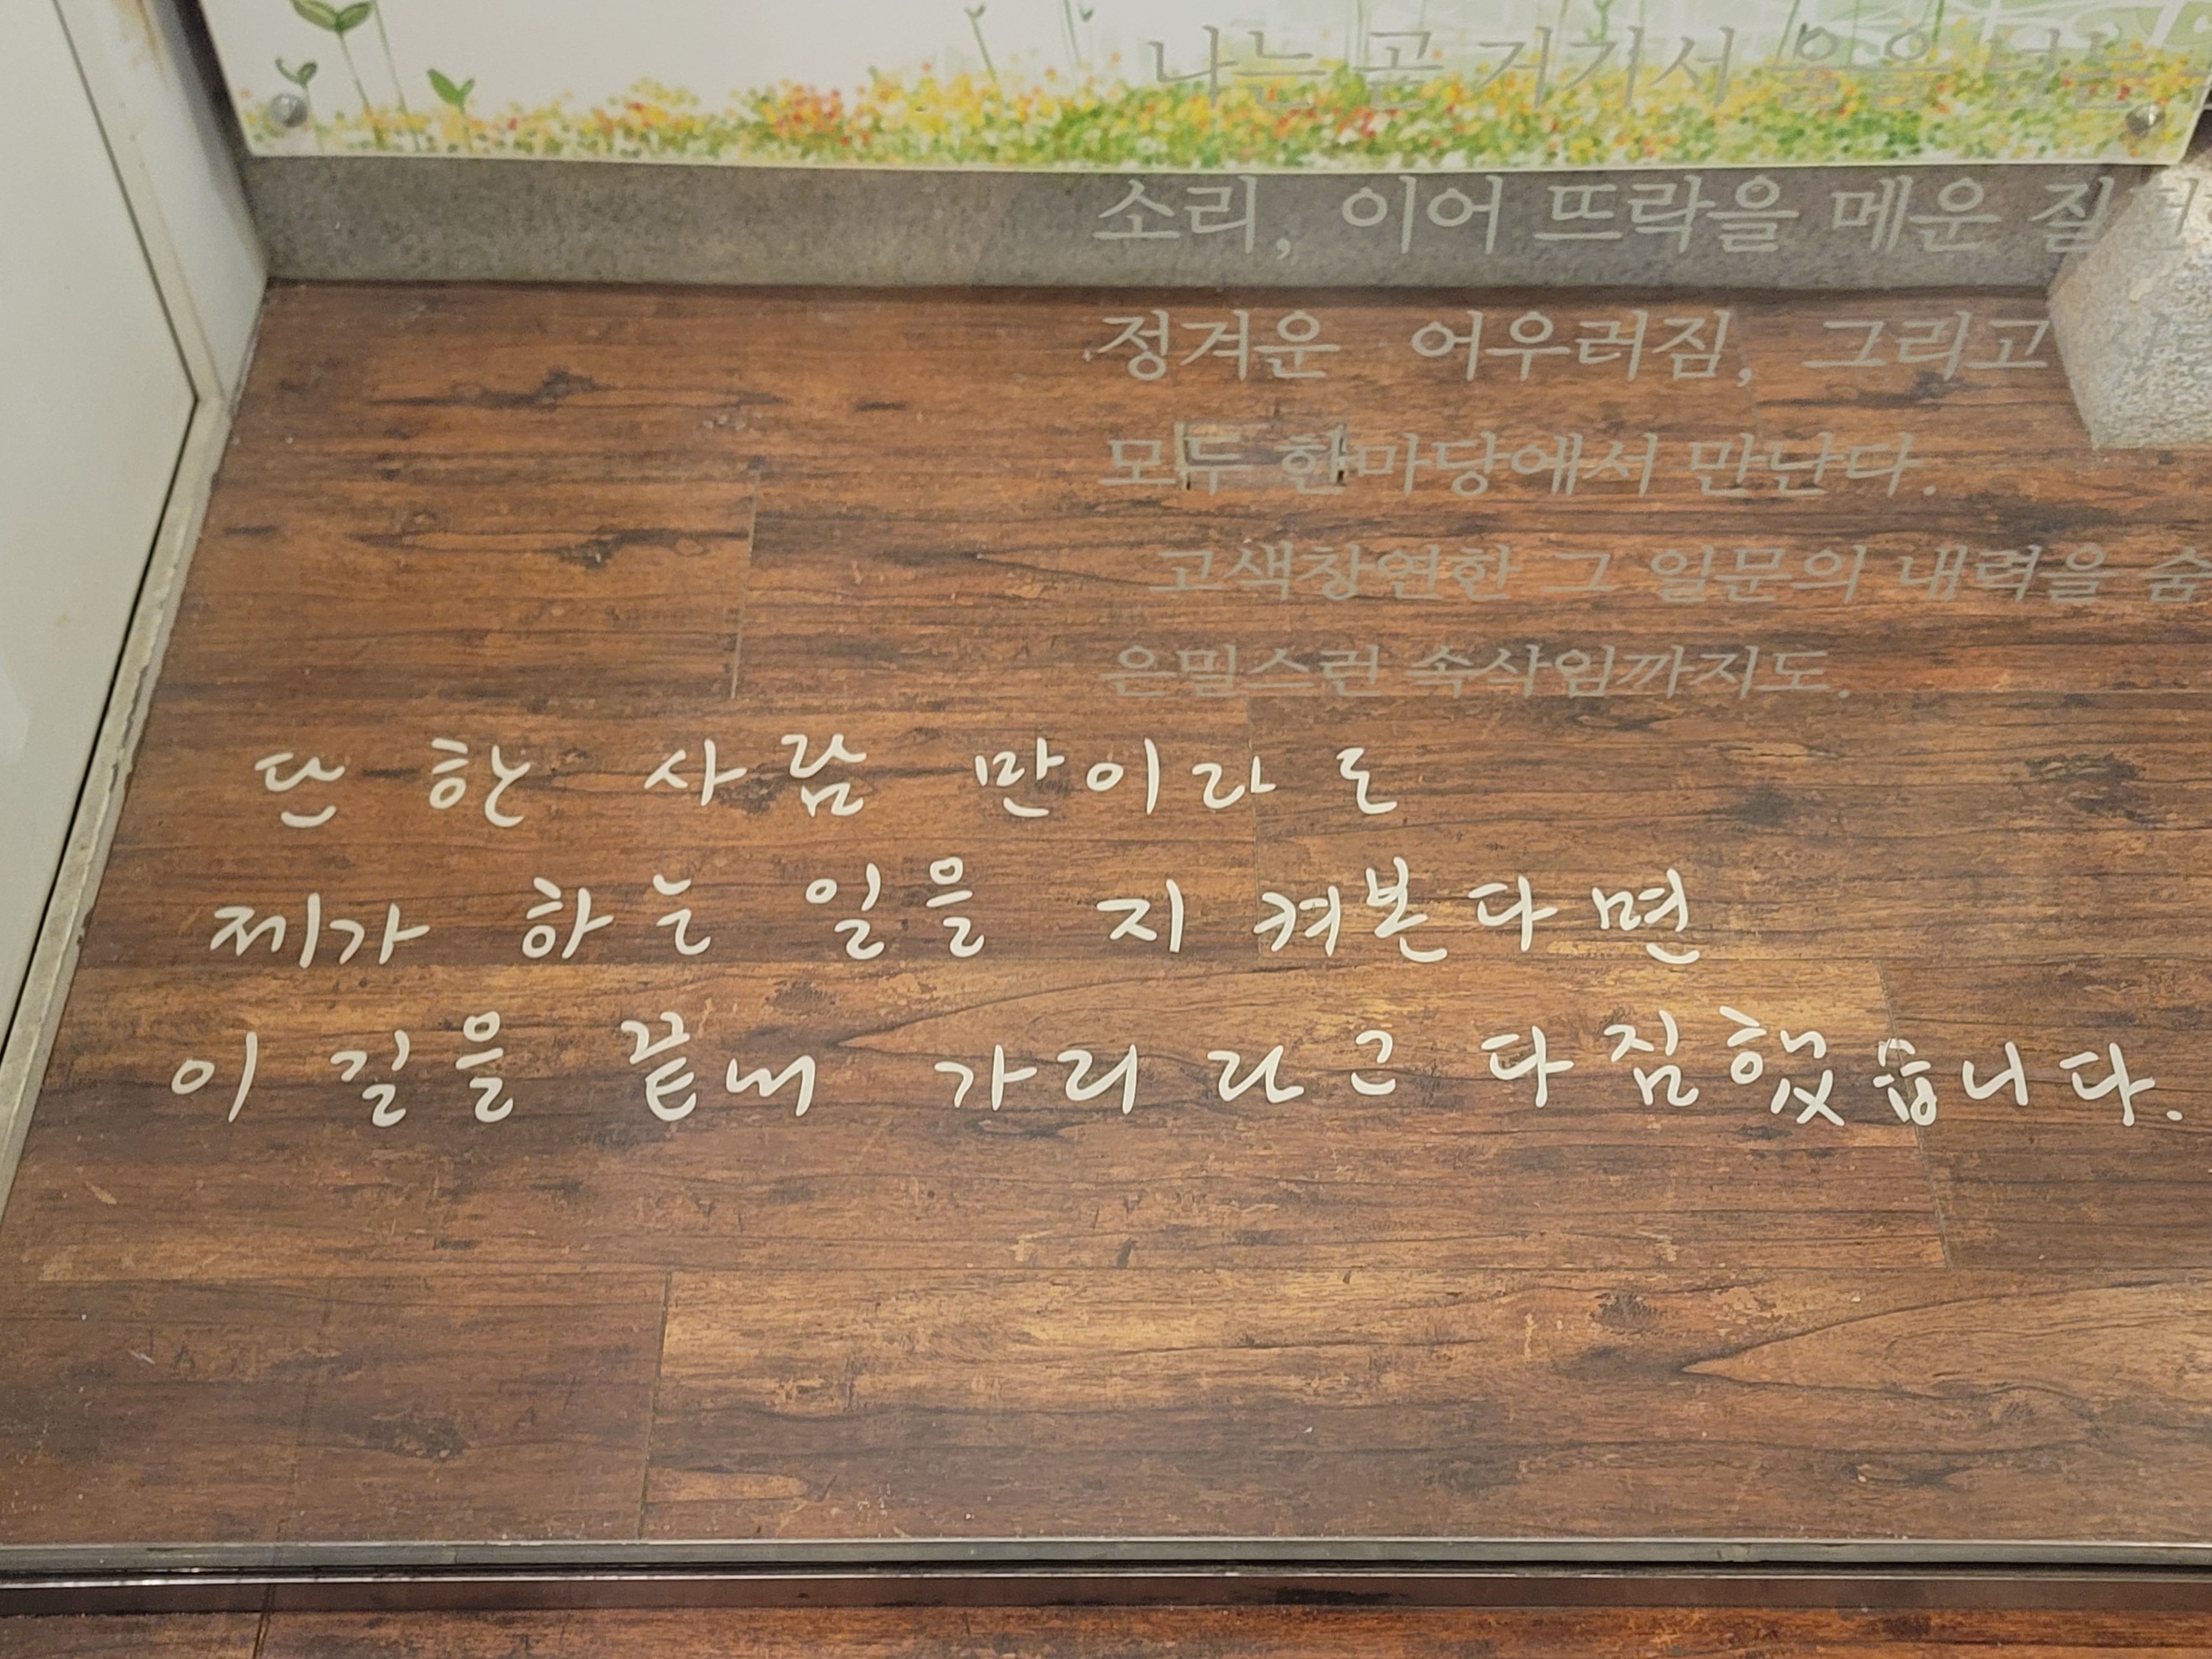 나는 곧 거기서
소리, 이어 뜨락을 메운 질
정겨운 어우러짐, 그리고
모두 한마당에서 만난다.
고색창연한 그 일문의 내력을 숨
은밀스런 속사임까지도.
단 한 사람 만이라도
제가 하는 일을 지켜본다면
이 길을 끝내 가리라고 다짐했습니다.